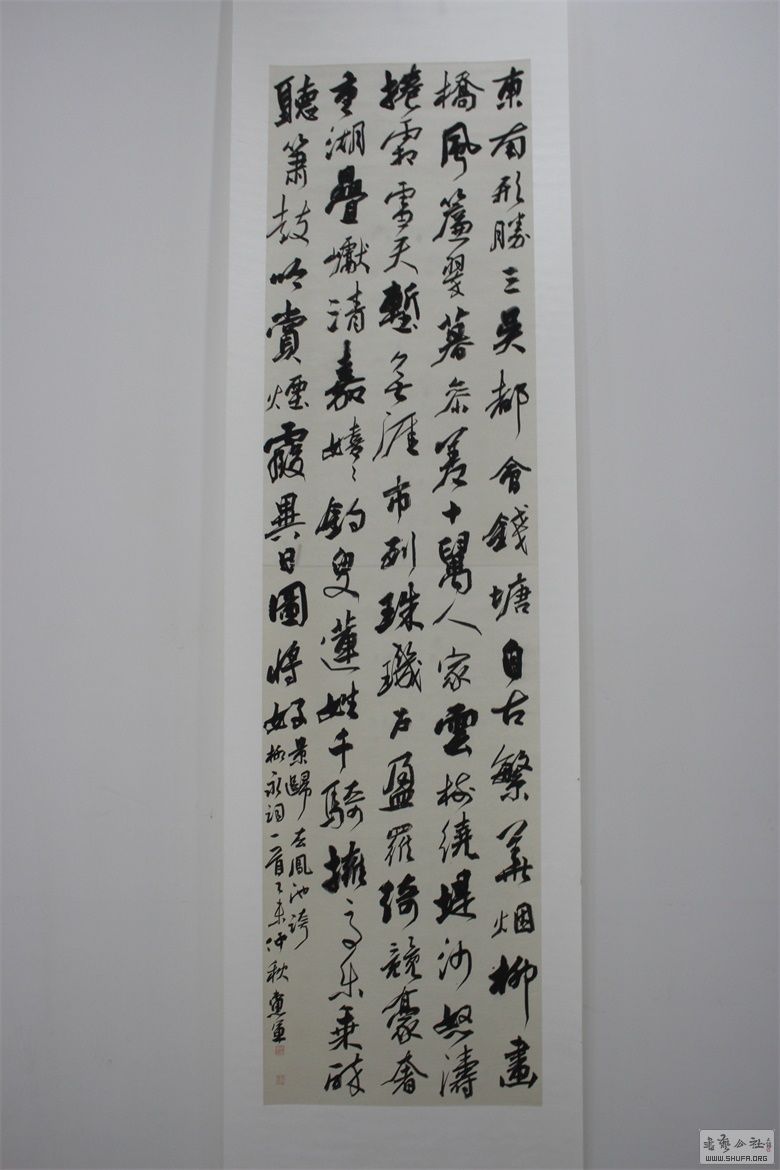 東南形勝三吳都會錢塘自古繁華烟柳畫
橋風簾翠幕參差十萬人家雲樹繞堤沙怒濤
捲霜雪天塹無涯市列珠璣戶盈羅綺競豪奢
重湖疊巘清嘉嬉々釣叟蓮娃千騎擁高牙乘醉
聽簫鼓吟賞煙霞異日圖將好
景歸去鳳池誇
柳永詞一首乙未仲秋惠軍
書藝公社
WWW.SHUFA.ORG